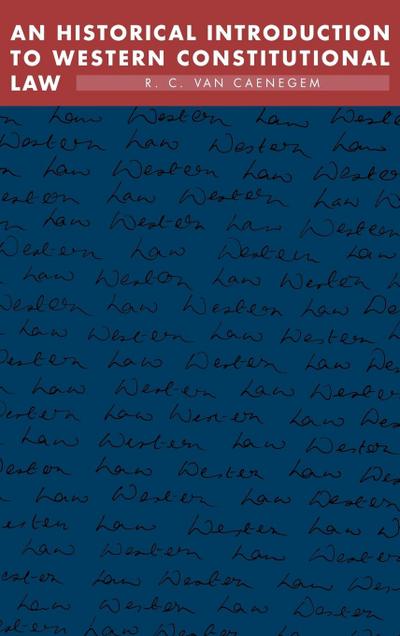 AN HISTORICAL INTRODUCTION
TO WESTERN CONSTITUTIONAL
LAW R. C. VAN CAENEGEM
Law Western Law
Western Law Western Law
Law Western Law Western
Law Western Law
Law Western Law Western
Western Law Western Law
Law Western Law Western Law
Western Law Western Law
Law Western Law Western
Law Western Law
Law Western Law Western
Western Law Western Law
Law Western Law Western
Law Western Law
Law Western Law Western
Law Western Law
Law Western Law Western
Law Western Law
Law Western Law Western